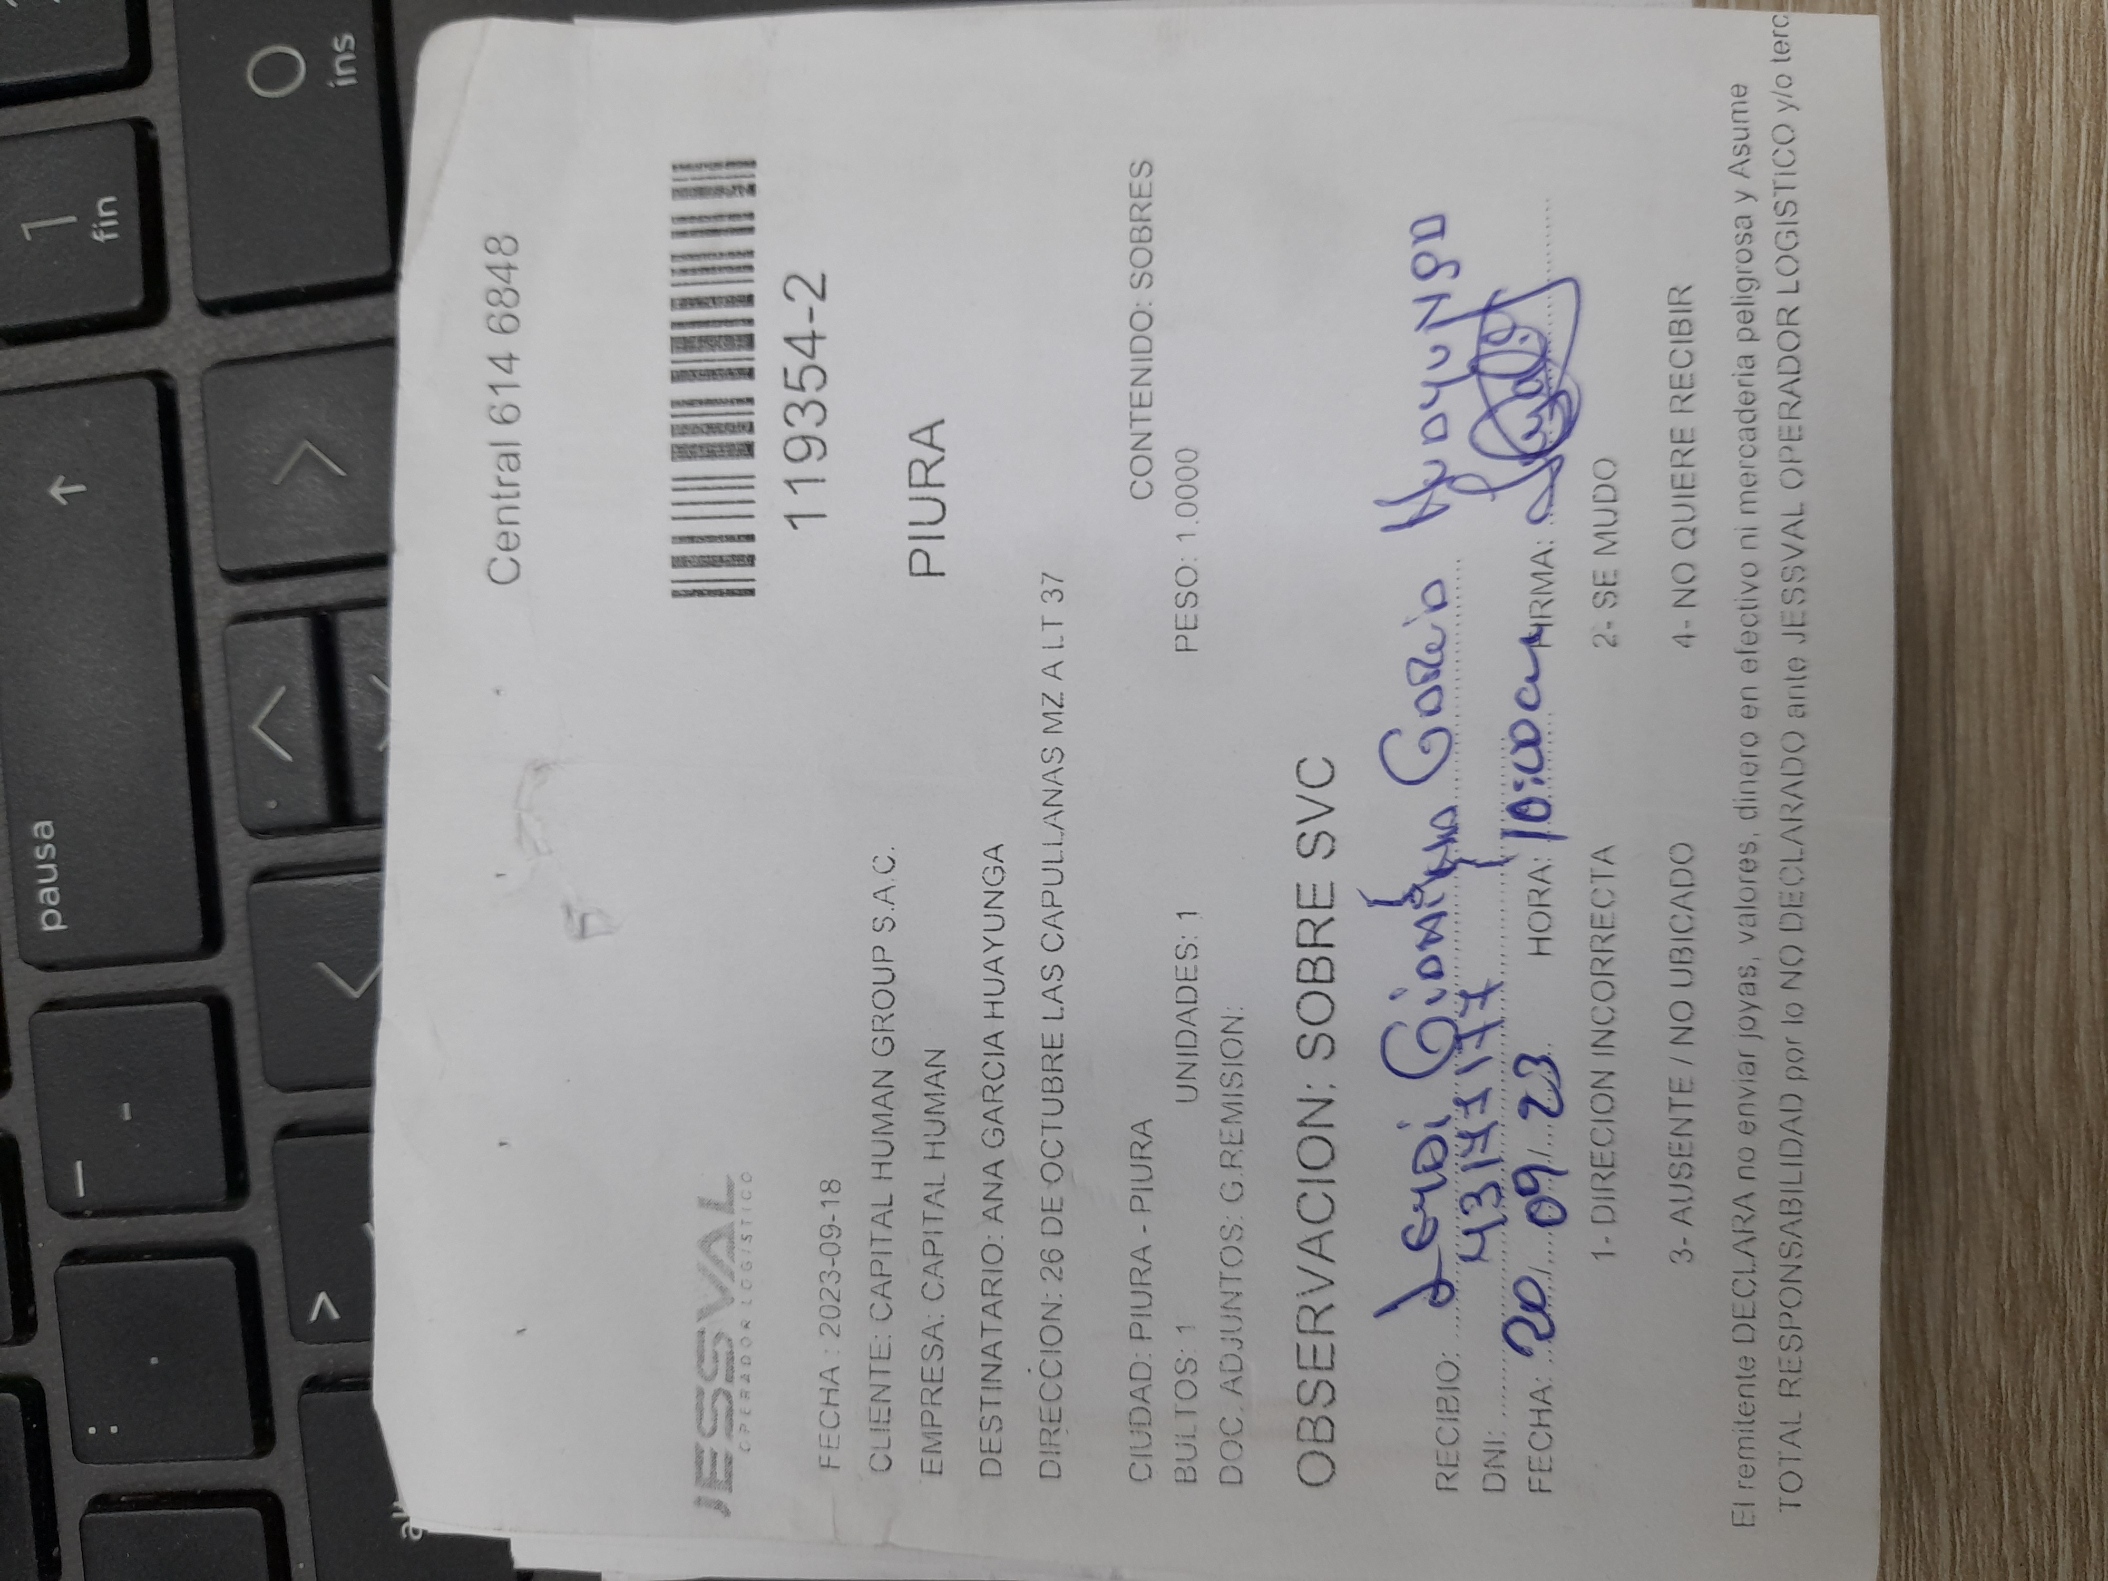 pausa
1
fin
:
.
_
-
0
ins
>
Central 614 6848
JESSVAL
OPERADOR LOGISTICO
119354-2
FECHA : 2023-09-18
CLIENTE: CAPITAL HUMAN GROUP S.A.C.
EMPRESA: CAPITAL HUMAN
PIURA
DESTINATARIO: ANA GARCIA HUAYUNGA
DIRECCION: 26 DE OCTUBRE LAS CAPULLANAS MZ A LT 37
CIUDAD: PIURA - PIURA CONTENIDO: SOBRES
BULTOS: 1 UNIDADES: 1 PESO: 1.0000
DOC. ADJUNTOS: G.REMISION:
OBSERVACION: SOBRE SVC
RECIBIO: Garcia Huayunga
DNI: 43177177
FECHA: 20/09/23 HORA: 10:00am FIRMA:
1- DIRECION INCORRECTA 2- SE MUDO
3- AUSENTE / NO UBICADO 4- NO QUIERE RECIBIR
El remitente DECLARA no enviar joyas, valores, dinero en efectivo ni mercaderia peligrosa y Asume
TOTAL RESPONSABILIDAD por lo NO DECLARADO ante JESSVAL OPERADOR LOGISTICO y/o terc